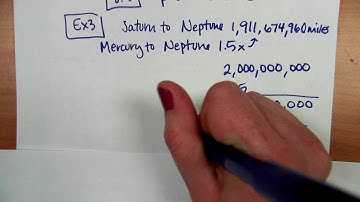 Ex3 Saturn to Neptune 1,911,674,960 miles
Mercury to Neptune 1.5x
2,000,000,000